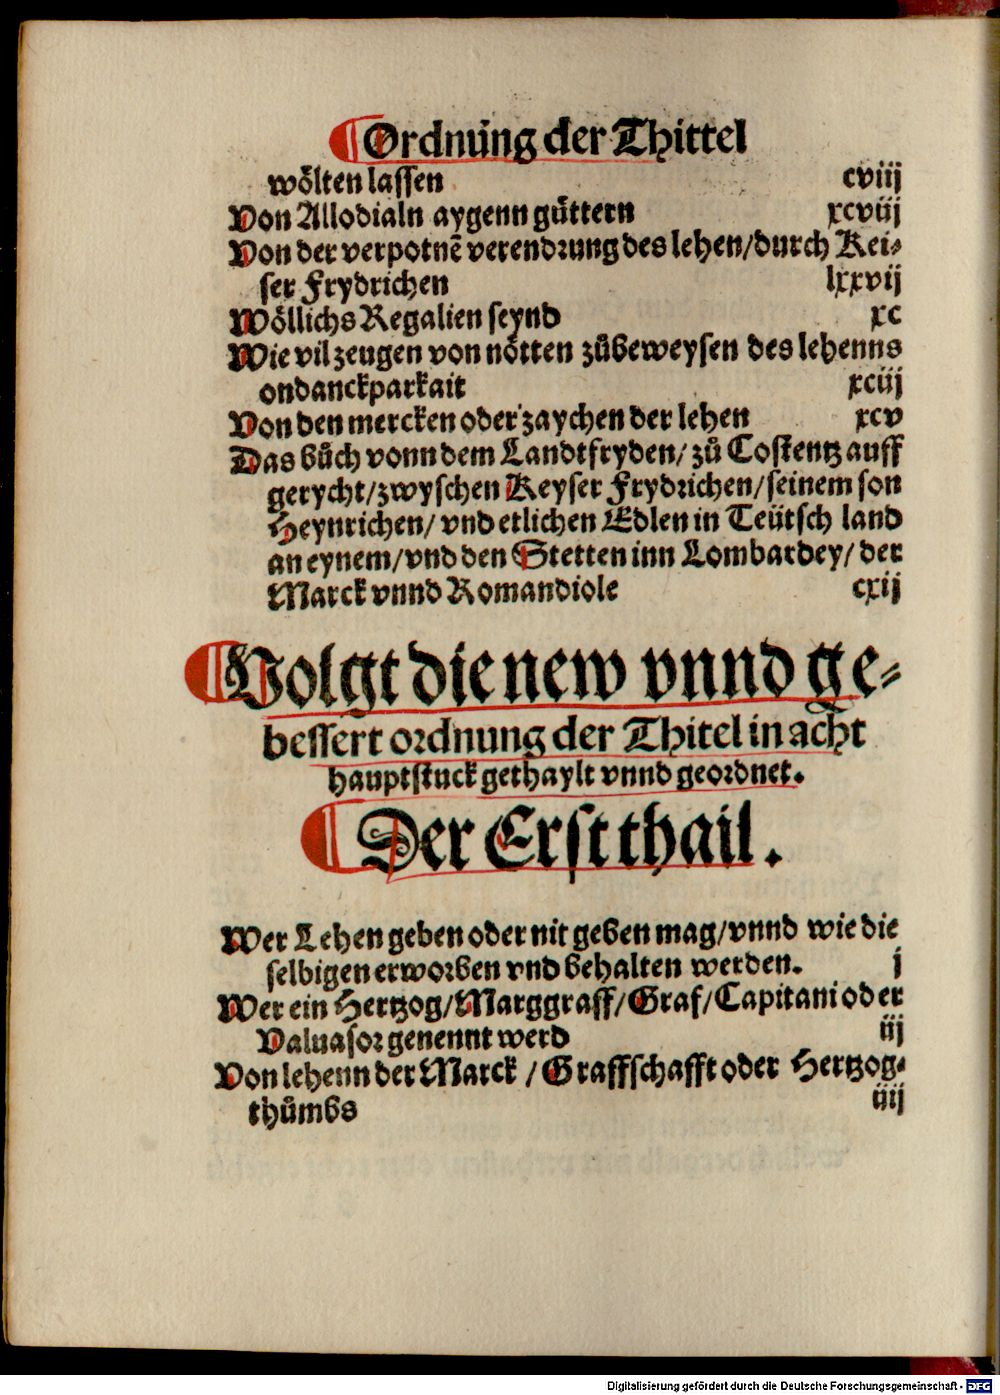 Ordnung der Thittel
woͤlten lassen cviij
Von Allodialn aygenn guͤttern xcviij
Von der verpotnẽ verendrung des lehen/durch Kei-
ser Frydrichen lxxvij
Woͤllichs Regalien seynd xc
Wie vil zeugen von noͤtten zuͦbeweysen des lehenns
ondanckparkait xciij
Von den mercken oder zaychen der lehen xcv
Das buͦch vonn dem Landtfryden/ zuͦ Costentz auff
gerycht/zwyschen Keyser Frydrichen/seinem son
Heynrichen/ vnd etlichen Edlen in Teuͤtsch land
an eynem/vnd den Stetten inn Lombardey/ der
Marck vnnd Romandiole cxij
Volgt die new vnnd ge-
bessert ordnung der Thitel in acht
hauptstuck gethaylt vnnd geordnet.
Der Erst thail.
Wer Lehen geben oder nit geben mag/vnnd wie die
selbigen erworben vnd behalten werden. j
Wer ein Hertzog/Marggraff/Graf/Capitani oder
Valuasor genennt werd iij
Von lehenn der Marck /Graffschafft oder Hertzog-
thuͦmbs iiij
Digitalisierung gefördert durch die Deutsche Forschungsgemeinschaft - DFG